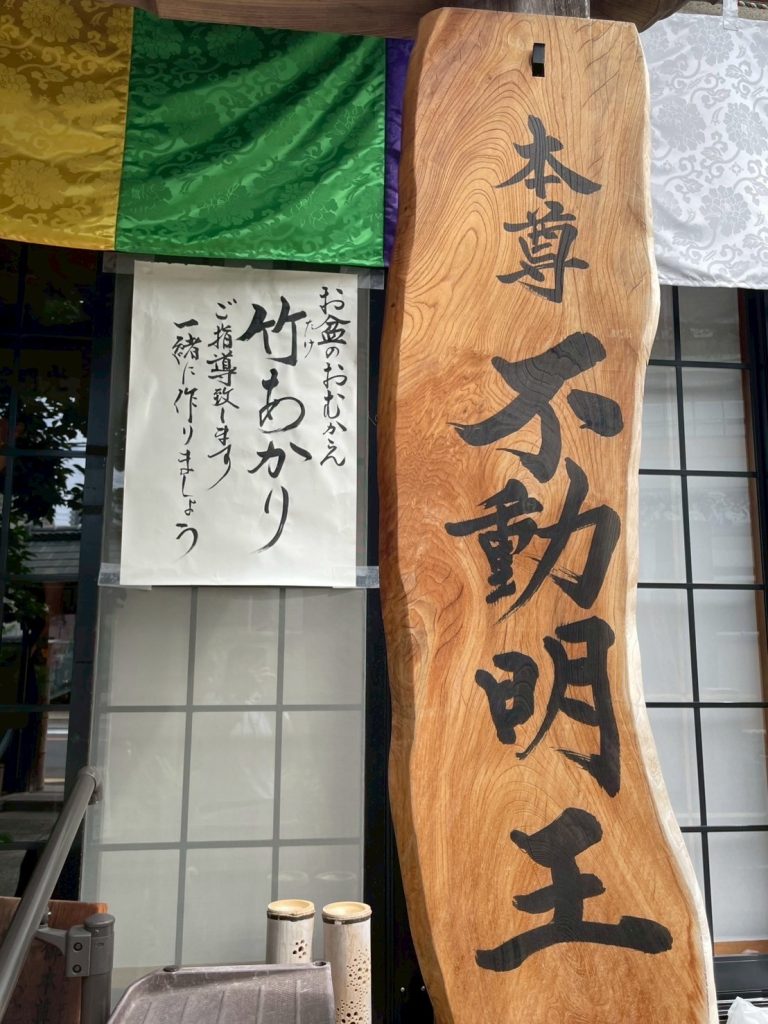 本尊
不動明王
お盆のおむかえ
竹あかり
たけ
ご指導致します
一緒に作りましょう